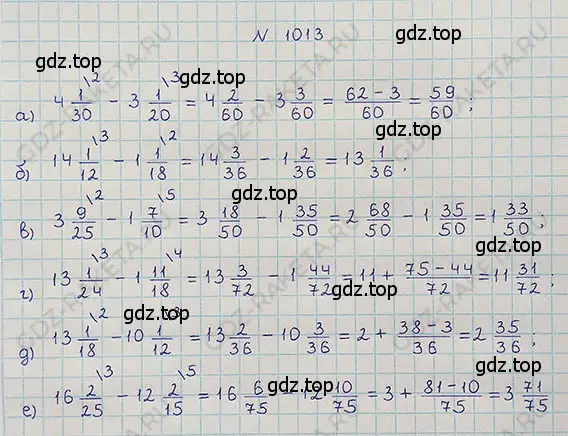 N 1013
gdz.top
gdz.top
а) 4 1/30 \2 − 3 1/20 \3 = 4 2/60 − 3 3/60 = (62 − 3)/60 = 59/60;
gdz.top
б) 14 1/12 \3 − 1 1/18 \2 = 14 3/36 − 1 2/36 = 13 1/36;
gdz.top
в) 3 9/25 \2 − 1 7/10 \5 = 3 18/50 − 1 35/50 = 2 68/50 − 1 35/50 = 1 33/50;
gdz.top
г) 13 1/24 \3 − 1 11/18 \4 = 13 3/72 − 1 44/72 = 11 + (75 − 44)/72 = 11 31/72;
gdz.top
gdz.top
д) 13 1/18 \2 − 10 1/12 \3 = 13 2/36 − 10 3/36 = 2 + (38 − 3)/36 = 2 35/36;
gdz.top
gdz.top
е) 16 2/25 \3 − 12 2/15 \5 = 16 6/75 − 12 10/75 = 3 + (81 − 10)/75 = 3 71/75
gdz.top
GDZ-RAKETA.RU